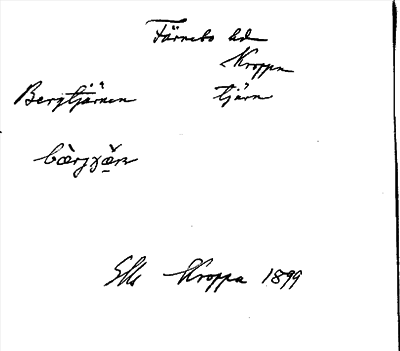 Färnebo hd
Kroppa
Bergtjärnen tjärn
Kroppa 1899